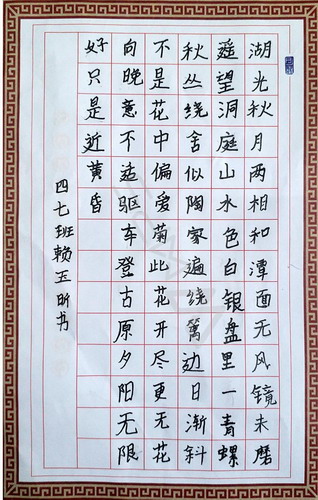 湖光秋月两相和潭面无风镜未磨
遥望洞庭山水色白银盘里一青螺
秋丛绕舍似陶家遍绕篱边日渐斜
不是花中偏爱菊此花开尽更无花
向晚意不适驱车登古原夕阳无限
好只是近黄昏
四七班赖玉昕书